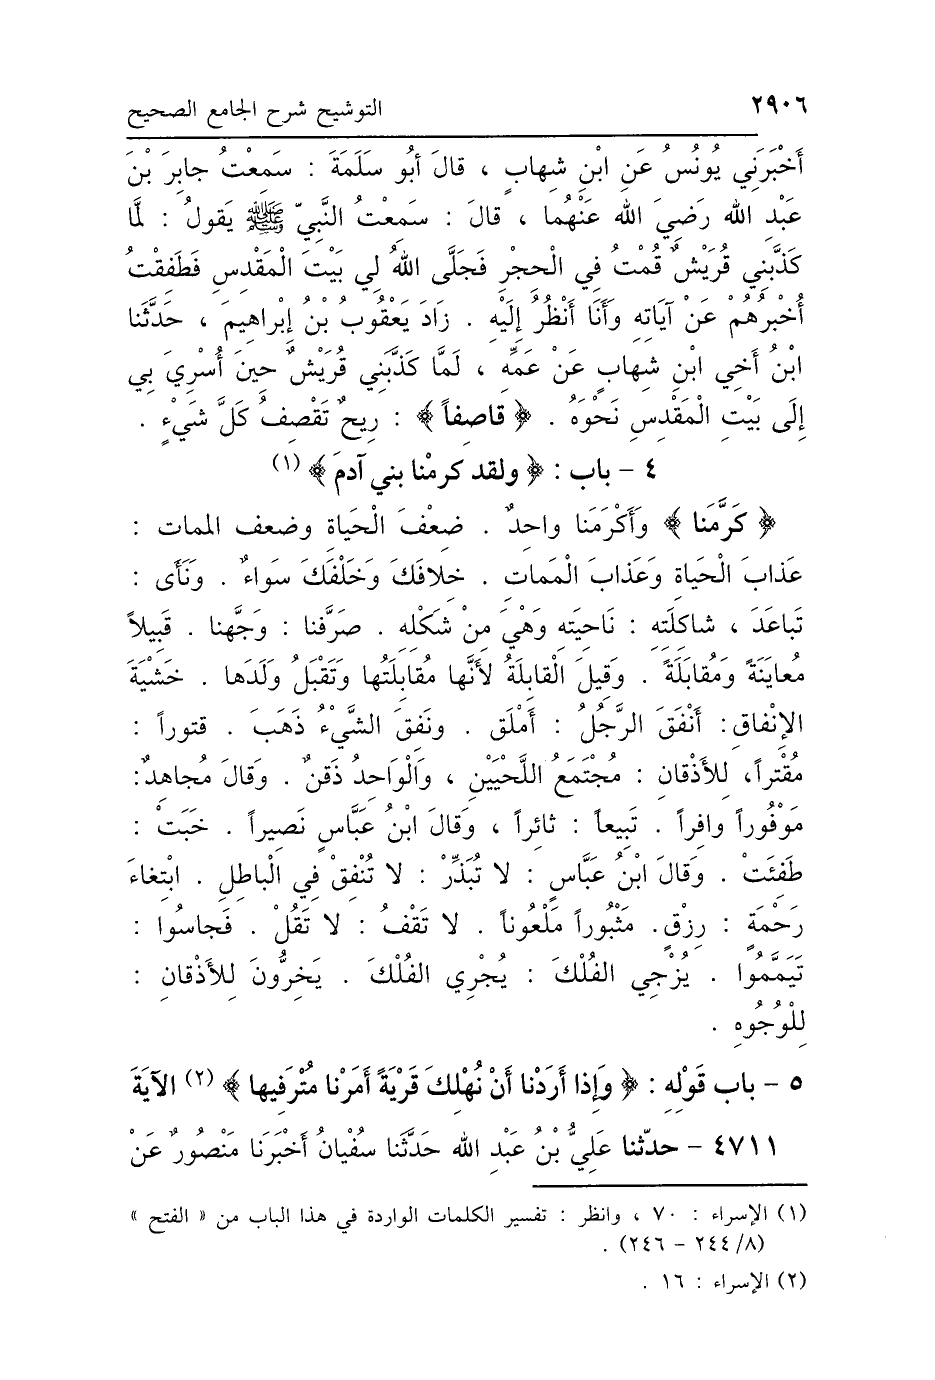 ٢٩٠٦ التوشيح شرح الجامع الصحيح
أَخْبَرَنِي يُونُسُ عَنِ ابْنِ شِهابٍ ، قالَ أَبُو سَلَمَةَ : سَمِعْتُ جابِرَ بْنَ
عَبْدِ الله رَضِيَ الله عَنْهُما ، قالَ : سَمِعْتُ النَّبِيّ ﷺ يَقولُ : لَمَّا
كَذَّبَنِي قُرَيْشٌ قُمْتُ فِي الْحِجْرِ فَجَلَّى اللهُ لِي بَيْتَ الْمَقْدِسِ فَطَفِقْتُ
أُخْبِرُهُمْ عَنْ آيَاتِهِ وَأَنَا أَنْظُرُ إِلَيْهِ . زَادَ يَعْقُوبُ بْنُ إِبْراهِيمَ ، حَدَّثَنا
ابْنُ أَخِي ابْنِ شِهابٍ عَنْ عَمِّهِ ، لَمَّا كَذَّبَنِي قُرَيْشٌ حِينَ أُسْرِيَ بِي
إِلَى بَيْتِ الْمَقْدِسِ نَحْوَهُ . ﴿ قاصِفاً ﴾ : رِيحٌ تَقْصِفُ كَلَّ شَيْءٍ .
٤ – باب : ﴿ ولقد كرمْنا بني آدمَ ﴾ (١)
﴿ كَرَّمَنا ﴾ وَأَكْرَمَنا واحِدٌ . ضِعْفَ الْحَيَاةِ وضعف الممات :
عَذابَ الْحَياةِ وَعَذابَ الْمَماتِ . خِلافَكَ وَخَلْفَكَ سَواءٌ . وَنَأَى :
تَباعَدَ ، شاكلَتِهِ : نَاحِيَتِهِ وَهْيَ مِنْ شَكْلِهِ . صَرَّفنا : وَجَّهنا . قَبِيلاً
مُعايَنَةً وَمُقابَلَةً . وَقِيلَ الْقابِلَةُ لأَنَّها مُقابِلَتُها وَتَقْبَلُ وَلَدَها . خَشْيَةَ
الإِنْفاقِ: أَنْفَقَ الرَّجُلُ : أَمْلَق . ونَفِقَ الشَّيْءُ ذَهَبَ . قتوراً :
مُقْتِراً، لِلأَذْقان : مُجْتَمَعُ اللَّحْيَيْنِ ، وَالْوَاحِدُ ذَقنٌ . وَقالَ مُجاهِدٌ:
مَوْفُوراً وافِراً . تَبِيعاً : ثائراً ، وَقالَ ابْنُ عَبَّاسٍ نَصِيراً . خَبَتْ :
طَفِئَتْ . وَقالَ ابْنُ عَبَّاسٍ : لا تُبَذِّرْ : لا تُنْفِقْ فِي الْباطِلِ . ابْتِغاءَ
رَحْمَةٍ : رِزْقٍ. مَثْبُوراً مَلْعُوناً . لا تَقْفُ : لا تَقُلْ . فَجاسُوا :
تَيَمَّمُوا . يُزْجِي الفُلْكَ : يُجْرِي الفُلْكَ . يَخِرُّونَ لِلأَذْقانِ :
لِلْوُجُوهِ .
٥ – باب قَوْله : ﴿ وَإِذا أَرَدْنا أَنْ نُهْلِكَ قَرْيَةً أَمَرْنا مُتْرَفِيها ﴾ (٢) الآيَةَ
٤٧١١ – حدّثنا عَلِيُّ بْنُ عَبْدِ الله حَدَّثَنا سفْيانُ أَخْبَرَنَا مَنْصُورٌ عَنْ
(١) الإسراء : ٧٠ ، وانظر : تفسير الكلمات الواردة في هذا الباب من « الفتح »
(٨/ ٢٤٤ – ٢٤٦) .
(٢) الإسراء : ١٦ .